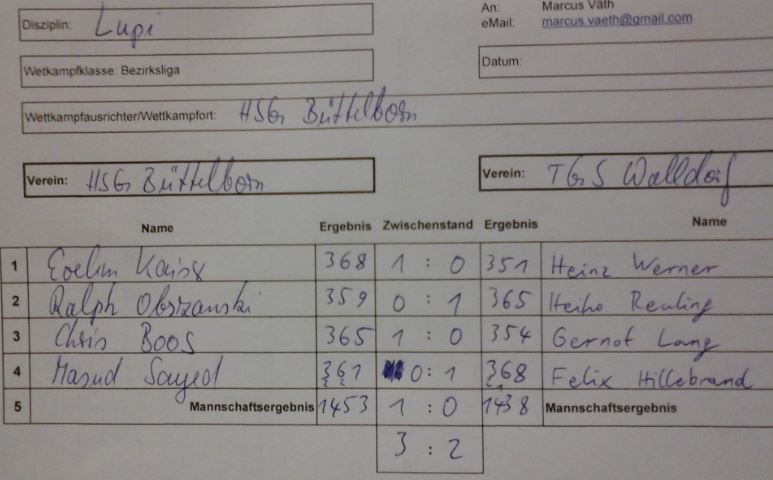 An: Marcus Väth
Disziplin: Lupi
eMail: marcus.vaeth@gmail.com
Wetkampfklasse: Bezirksliga
Datum:
Wettkampfausrichter/Wettkampfort: HSG Büttelborn
Verein: HSG Büttelborn
Verein: TGS Walldorf
Name Ergebnis Zwischenstand Ergebnis Name
1 Evelin 368 1 : 0 351 Heinz Werner
2 Ralph Obrzanski 359 0 : 1 365 Heiko Reuling
3 Chris Boos 365 1 : 0 354 Gernot Lang
4 Masud Sayed 361 0 : 1 368 Felix Hillebrand
5 Mannschaftsergebnis 1453 1 : 0 1438 Mannschaftsergebnis
3 : 2